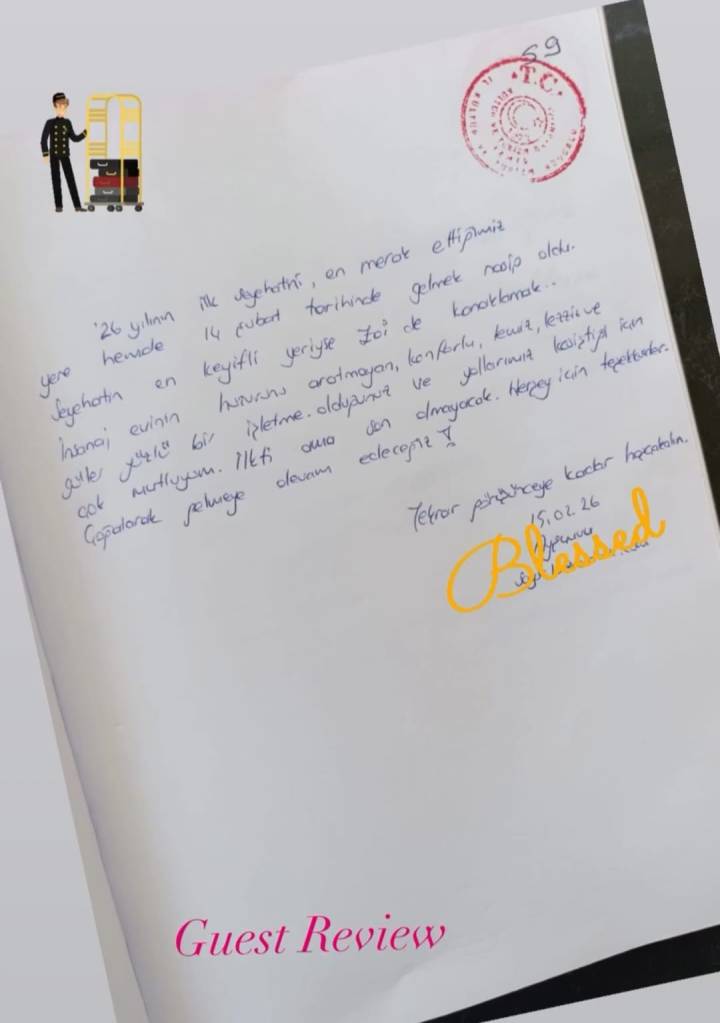 59
T.C.
'26 yılının ilk seyehatni, en merak ettiğimiz
yere hemde 14 şubat tarihinde gelmek nasip oldu.
Seyehatin en keyifli yeriyse Zoi de konaklamak..
İnsanaj evinin huzurunu aratmayan, konforlu, temiz, lezziz ve
güler yüzlü bir işletme. olduğunuz ve yollarımız kesiştiği için
çok mutluyum. İlkti ama son olmayacak. Herşey için teşekkürler.
Çoğalarak gelmeye devam edeceğiz
Tekrar görüşünceye kadar hoşcakalın.
15.02.26
Blessed
Guest Review